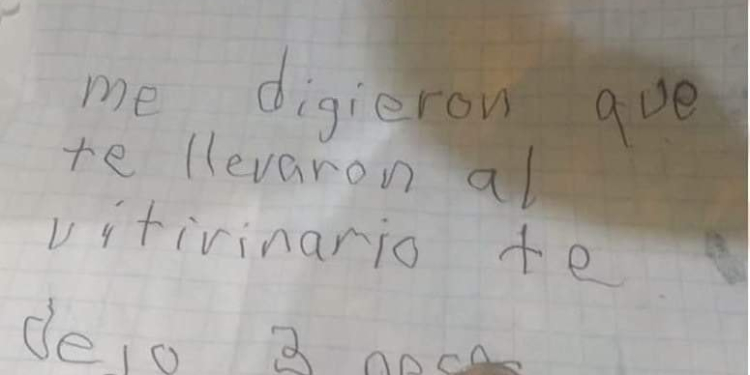 me digieron que
te llevaron al
vitirinario te
dejo 3